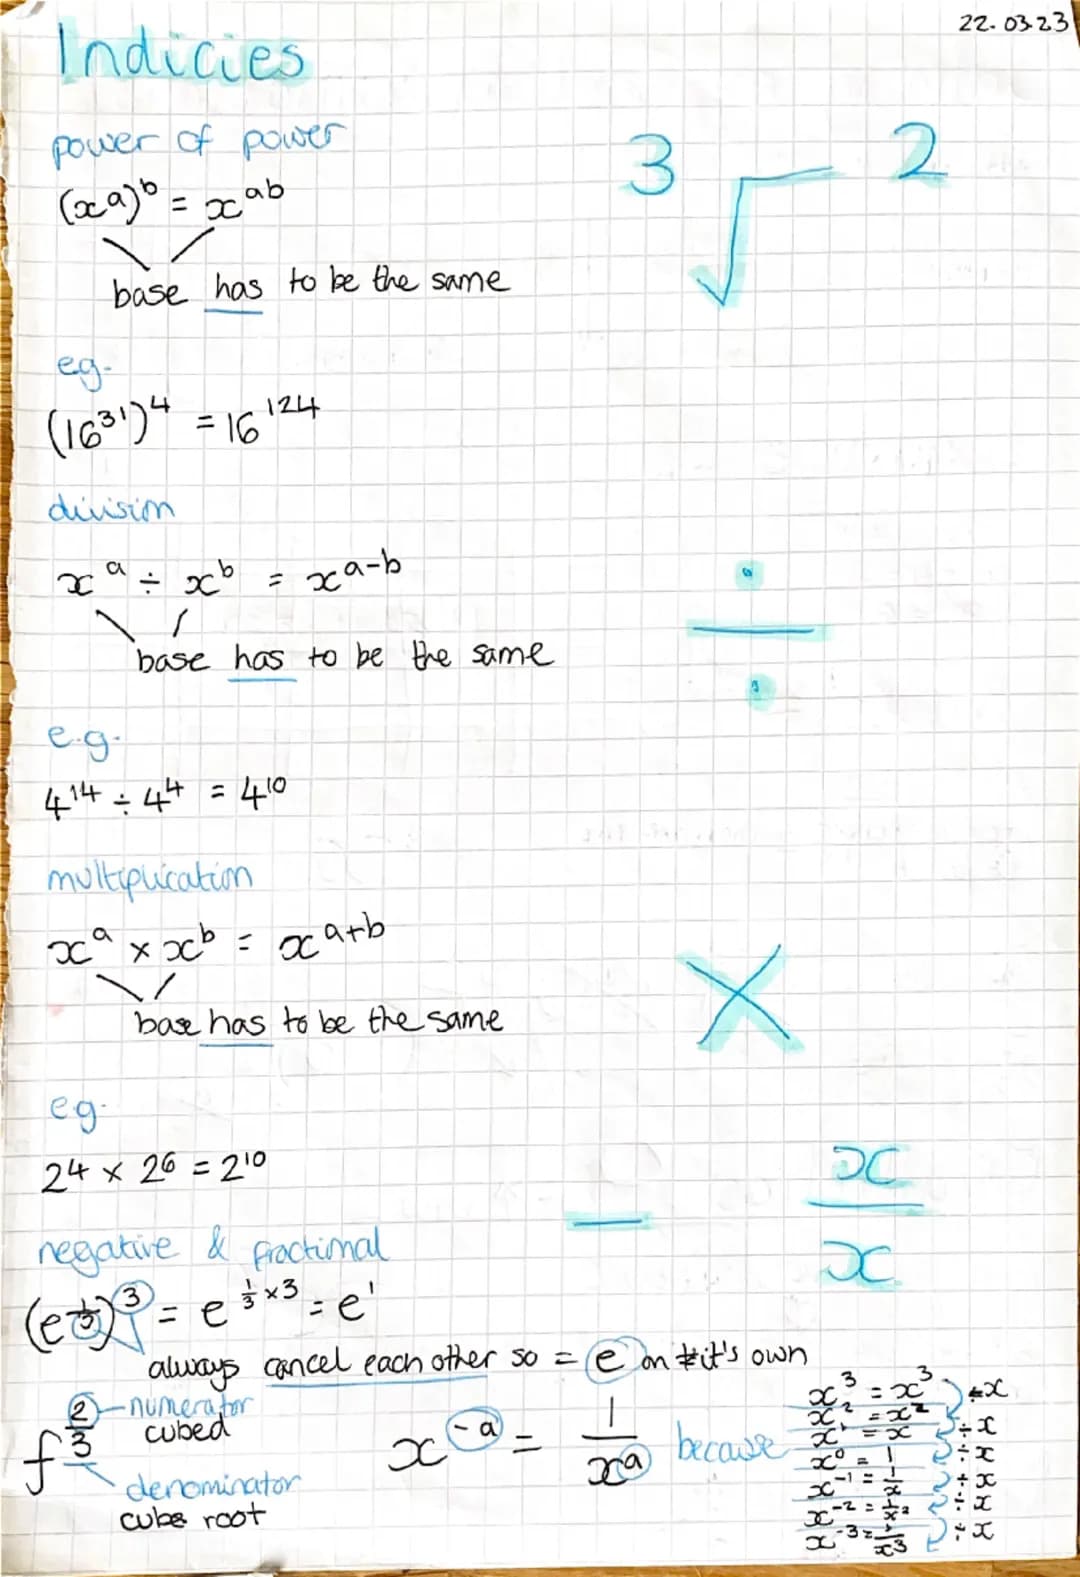 22.03.23
Indicies
power of power
(xᵃ)ᵇ = xᵃᵇ
base has to be the same
3 √ 2
eg.
(16³¹)⁴ = 16¹²⁴
division
xᵃ ÷ xᵇ = xᵃ⁻ᵇ
base has to be the same
÷
e.g.
4¹⁴ ÷ 4⁴ = 4¹⁰
multiplication
xᵃ × xᵇ = xᵃ⁺ᵇ
base has to be the same
×
eg.
2⁴ × 2⁶ = 2¹⁰
— x/x
negative & fractional
(e^(1/3))³ = e^(1/3 × 3) = e¹
always cancel each other so = e on it's own
f^(2/3)
numerator
cubed
denominator
cube root
x⁻ᵃ = 1/xᵃ because
x³ = x³ ÷x
x² = x² ÷x
x¹ = x ÷x
x⁰ = 1 ÷x
x⁻¹ = 1/x ÷x
x⁻² = 1/x² ÷x
x⁻³ = 1/x³